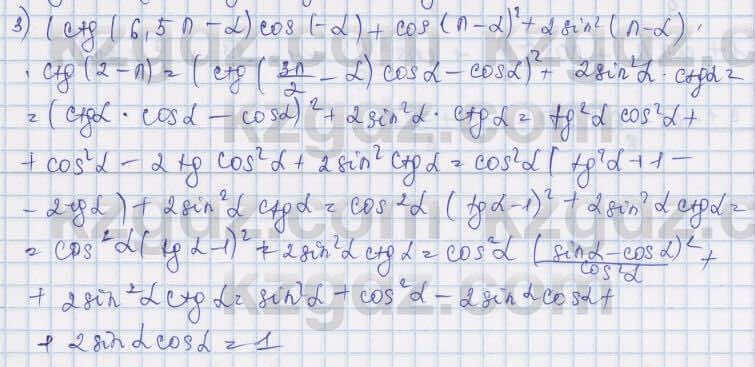 3) (ctg(6,5π-α)cos(-α)+cos(π-α)²+2sin²(π-α)·
·ctg(2-π)=(ctg(3π/2-α)cosα-cosα)²+2sin²α·ctgα=
=(ctgα·cosα-cosα)²+2sin²α·ctgα=tg²α cos²α+
+cos²α-2tg cos²α+2sin²ctgα=cos²α(tg²α+1-
-2tgα)+2sin²α ctgα=cos²α(tgα-1)²+2sin²α ctgα=
=cos²α(tgα-1)²+2sin²α ctgα=cos²α (sinα-cosα)²/cos²α+
+2sin²α ctgα=sin²α+cos²α-2sinαcosα+
+2sinαcosα=1
kzgdz.com